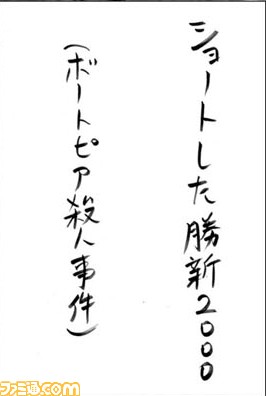 ショートした勝新2000
(ポートピア殺人事件)
ファミ通.com